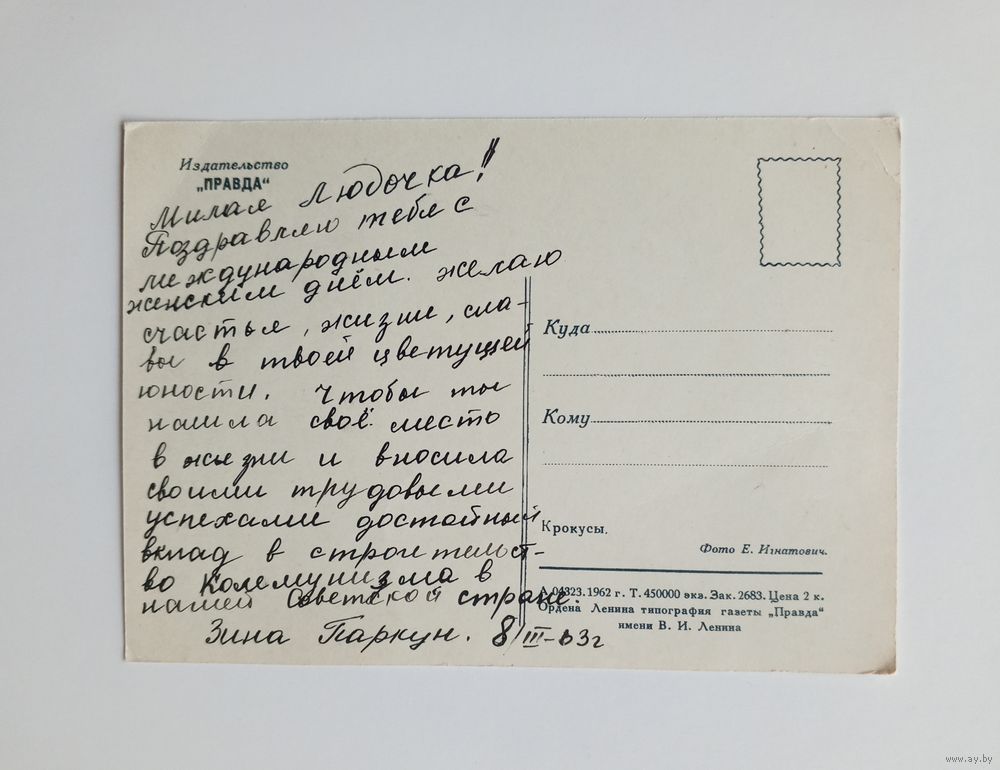 Издательство
„ПРАВДА“
Милая Людочка!
Поздравляю тебя с
международным
женским днём. желаю
счастья, жизни, сла-
вы в твоей цветущей
юности. Чтобы ты
нашла своё место
в жизни и вносила
своими трудовыми
успехами достойный
вклад в строительст-
во Коммунизма в
нашей Советской стране.
Зина Паркун. 8/III-63г
Куда
Кому
Крокусы.
Фото Е. Игнатович.
А 04323.1962 г. Т. 450000 экз. Зак. 2683. Цена 2 к.
Ордена Ленина типография газеты „Правда“
имени В. И. Ленина
www.ay.by